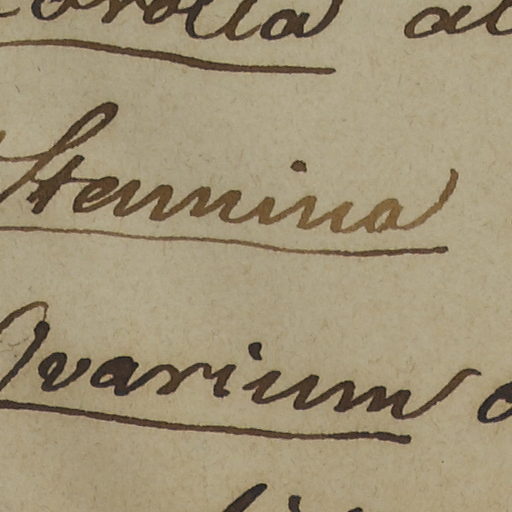 Corolla al
Stamina
Ovarium